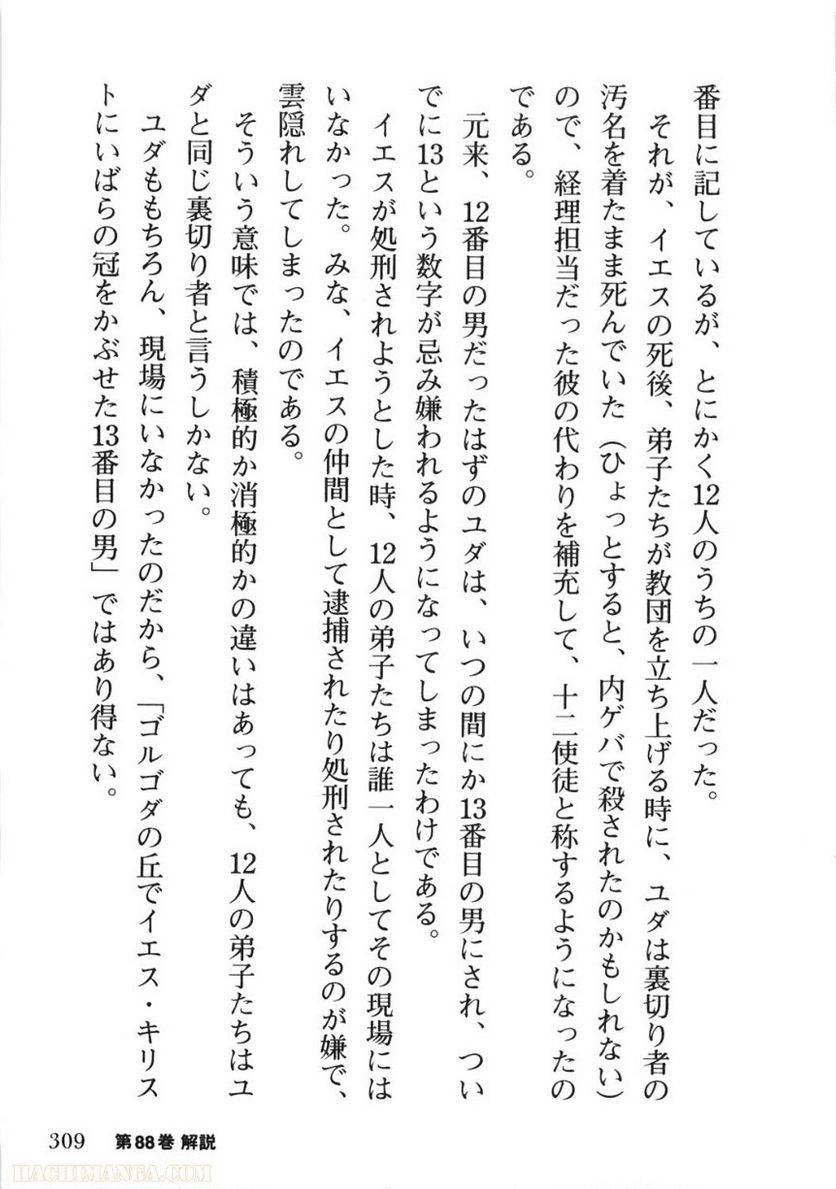 番目に記しているが、とにかく12人のうちの一人だった。
それが、イエスの死後、弟子たちが教団を立ち上げる時に、ユダは裏切り者の
汚名を着たまま死んでいた（ひょっとすると、内ゲバで殺されたのかもしれない）
ので、経理担当だった彼の代わりを補充して、十二使徒と称するようになったの
である。
元来、12番目の男だったはずのユダは、いつの間にか13番目の男にされ、つい
でに13という数字が忌み嫌われるようになってしまったわけである。
イエスが処刑されようとした時、12人の弟子たちは誰一人としてその現場には
いなかった。みな、イエスの仲間として逮捕されたり処刑されたりするのが嫌で、
雲隠れしてしまったのである。
そういう意味では、積極的か消極的かの違いはあっても、12人の弟子たちはユ
ダと同じ裏切り者と言うしかない。
ユダももちろん、現場にいなかったのだから、「ゴルゴダの丘でイエス・キリス
トにいばらの冠をかぶせた13番目の男」ではあり得ない。
309 第88巻 解説
HACHIMANGA.COM